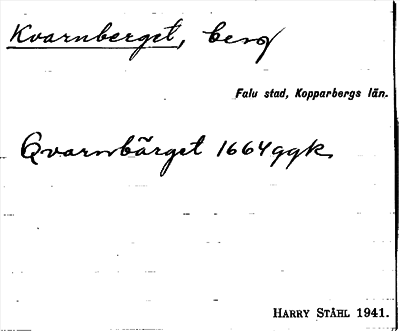 Kvarnberget, berg
Falu stad, Kopparbergs län.
Qvarnbärget 1664 ggk.
HARRY STÅHL 1941.